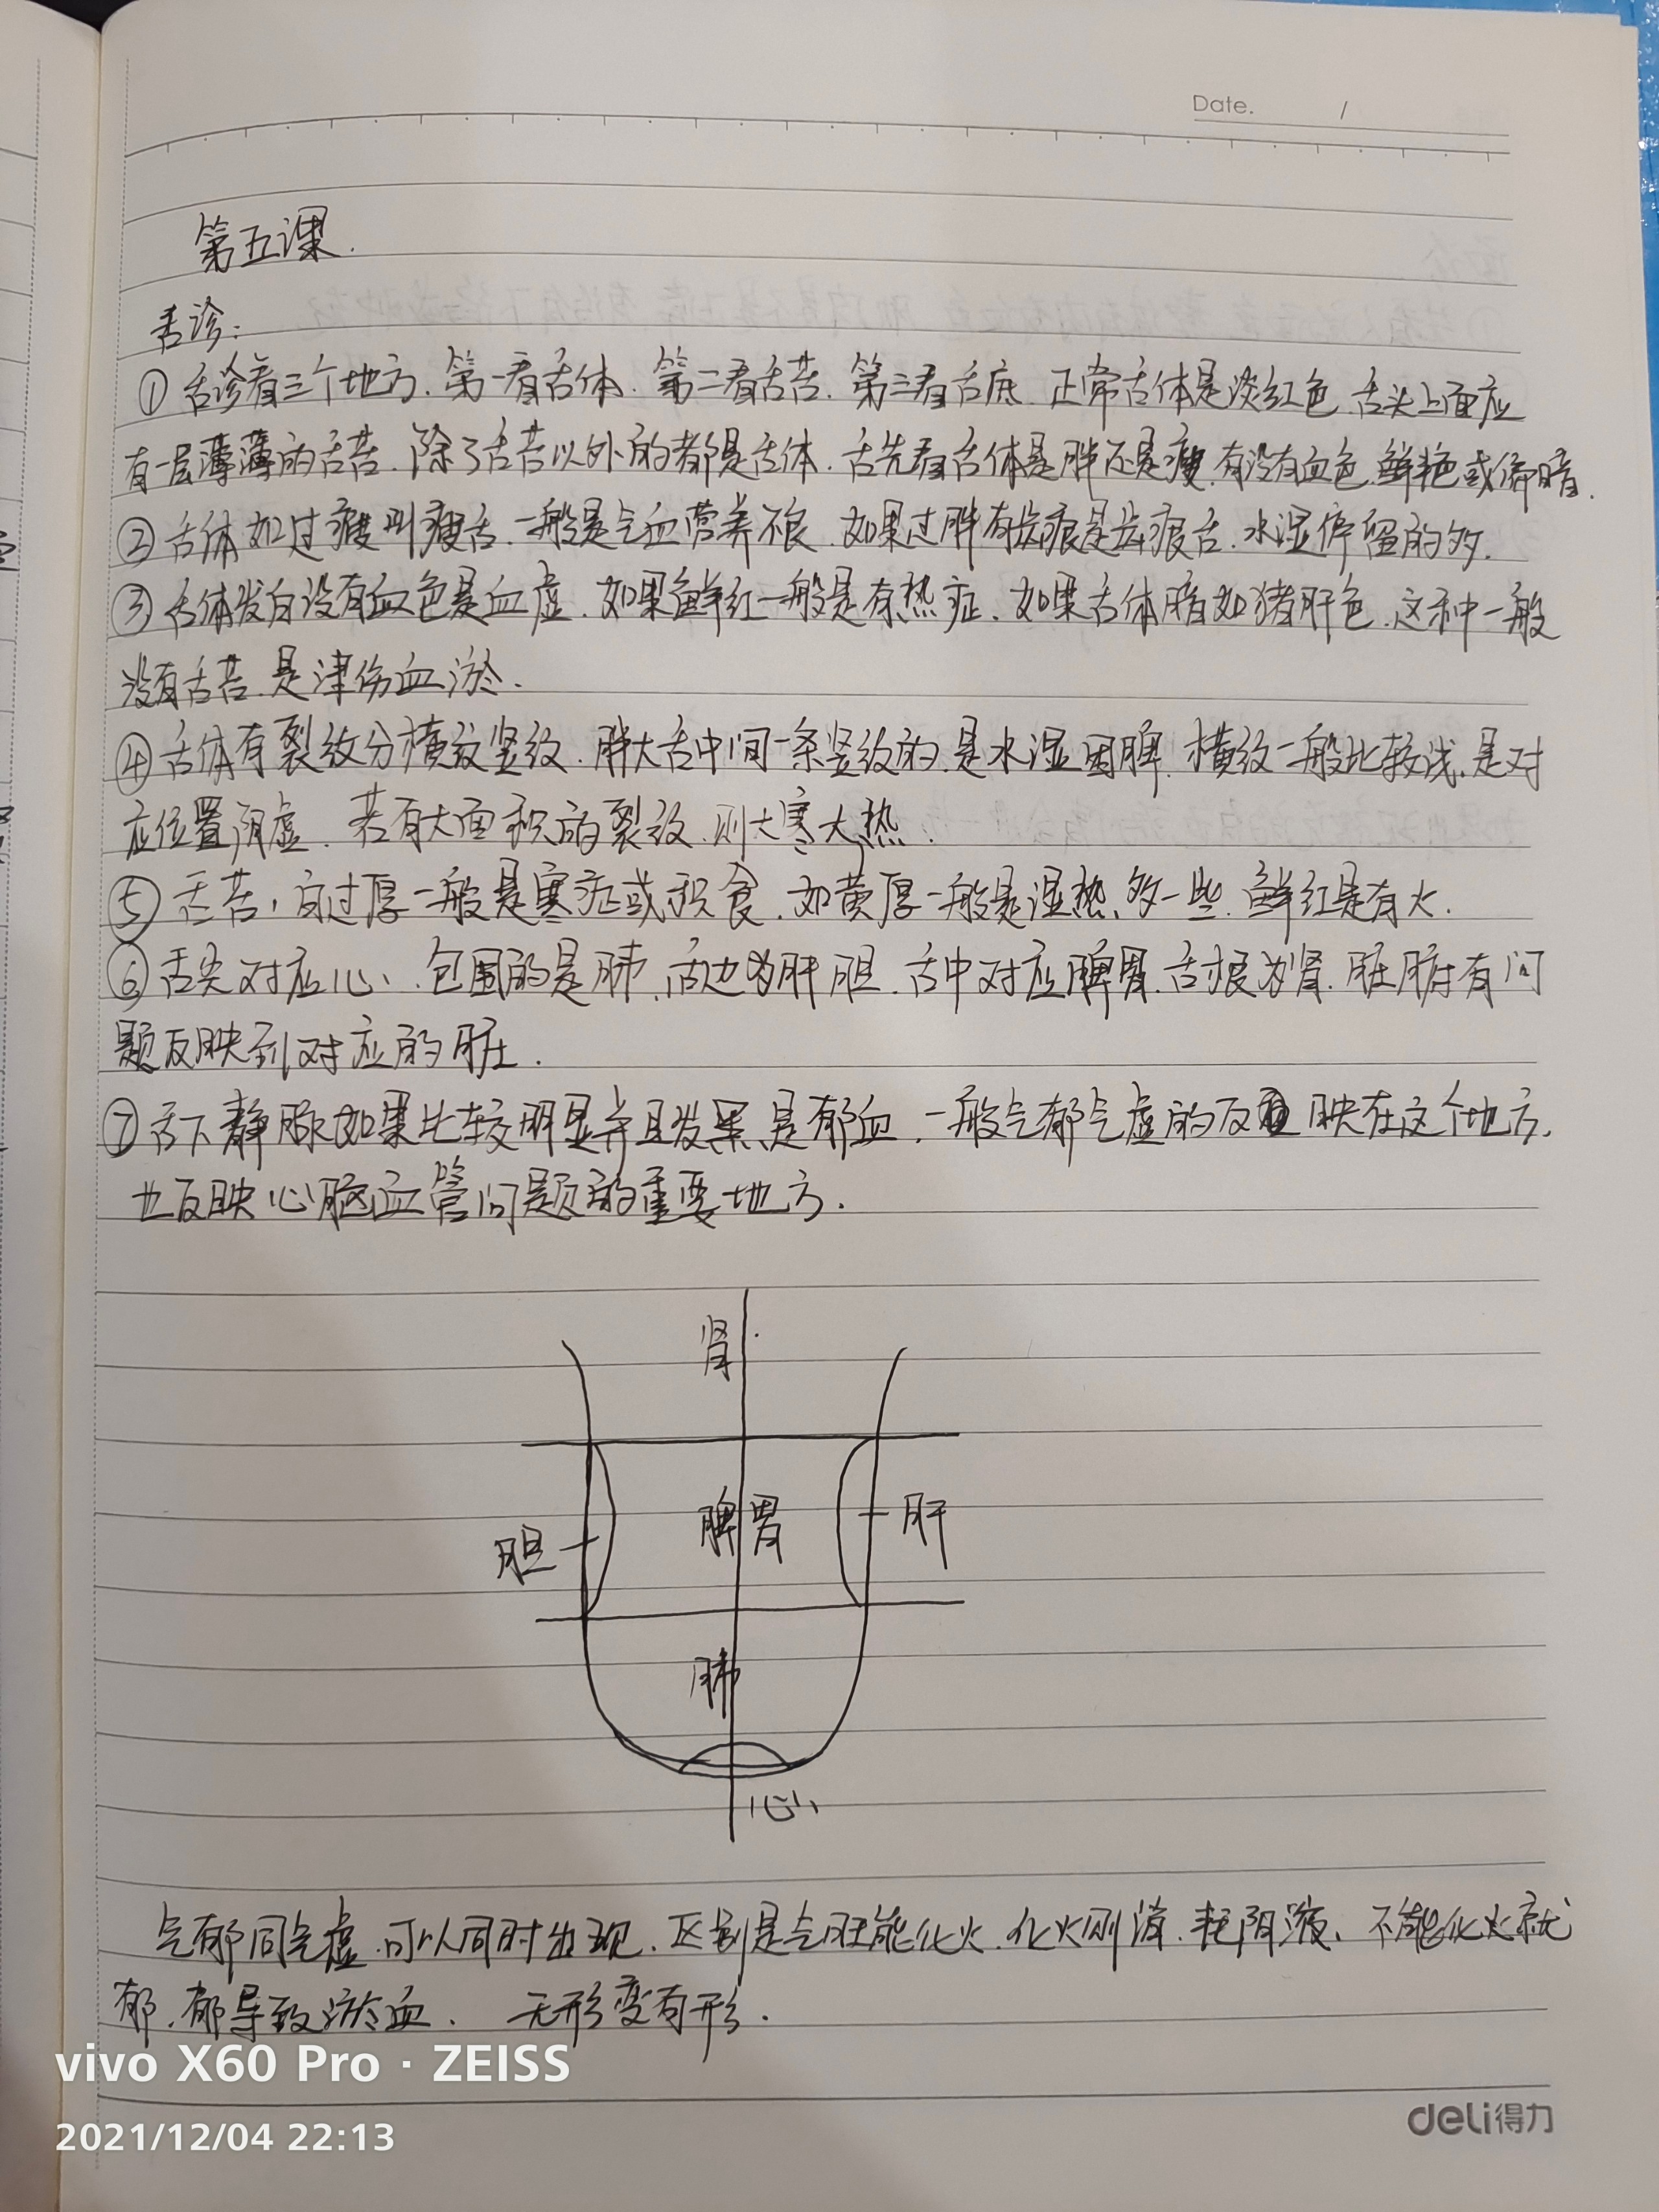 Date.          /
第五课.
舌诊:
① 舌诊看三个地方.第一看舌体.第二看舌苔.第三看舌底.正常舌体是淡红色.舌头上面应
有一层薄薄的舌苔.除了舌苔以外的都是舌体.舌先看舌体是胖还是瘦.有没有血色.鲜艳或偏暗.
② 舌体如过瘦叫瘦舌.一般是气血营养不良.如果过胖有齿痕是齿痕舌.水湿停留的多.
③ 舌体发白没有血色是血虚.如果鲜红一般是有热症.如果舌体暗如猪肝色.这种一般
没有舌苔.是津伤血淤.
④ 舌体有裂纹分横纹竖纹.胖大舌中间一条竖纹的.是水湿困脾.横纹一般比较浅.是对
应位置阴虚.若有大面积的裂纹.则大寒大热.
⑤ 舌苔,白过厚一般是寒症或积食.如黄厚一般是湿热、多一些.鲜红是有火.
⑥ 舌尖对应心、.包围的是肺.舌边为肝胆.舌中对应脾胃.舌根为肾.脏腑有问
题反映到对应的脏.
⑦ 舌下静脉如果比较明显并且发黑、是郁血.一般气郁气虚的反映在这个地方.
也反映心脑血管问题的重要地方.
肾.
脾胃
肝
胆
肺
心
气郁同气虚.可以同时出现.区别是气旺能化火.化火则消.耗阴液、不能化火就
郁.郁导致淤血.无形变有形.
vivo X60 Pro · ZEISS
2021/12/04 22:13
deli得力